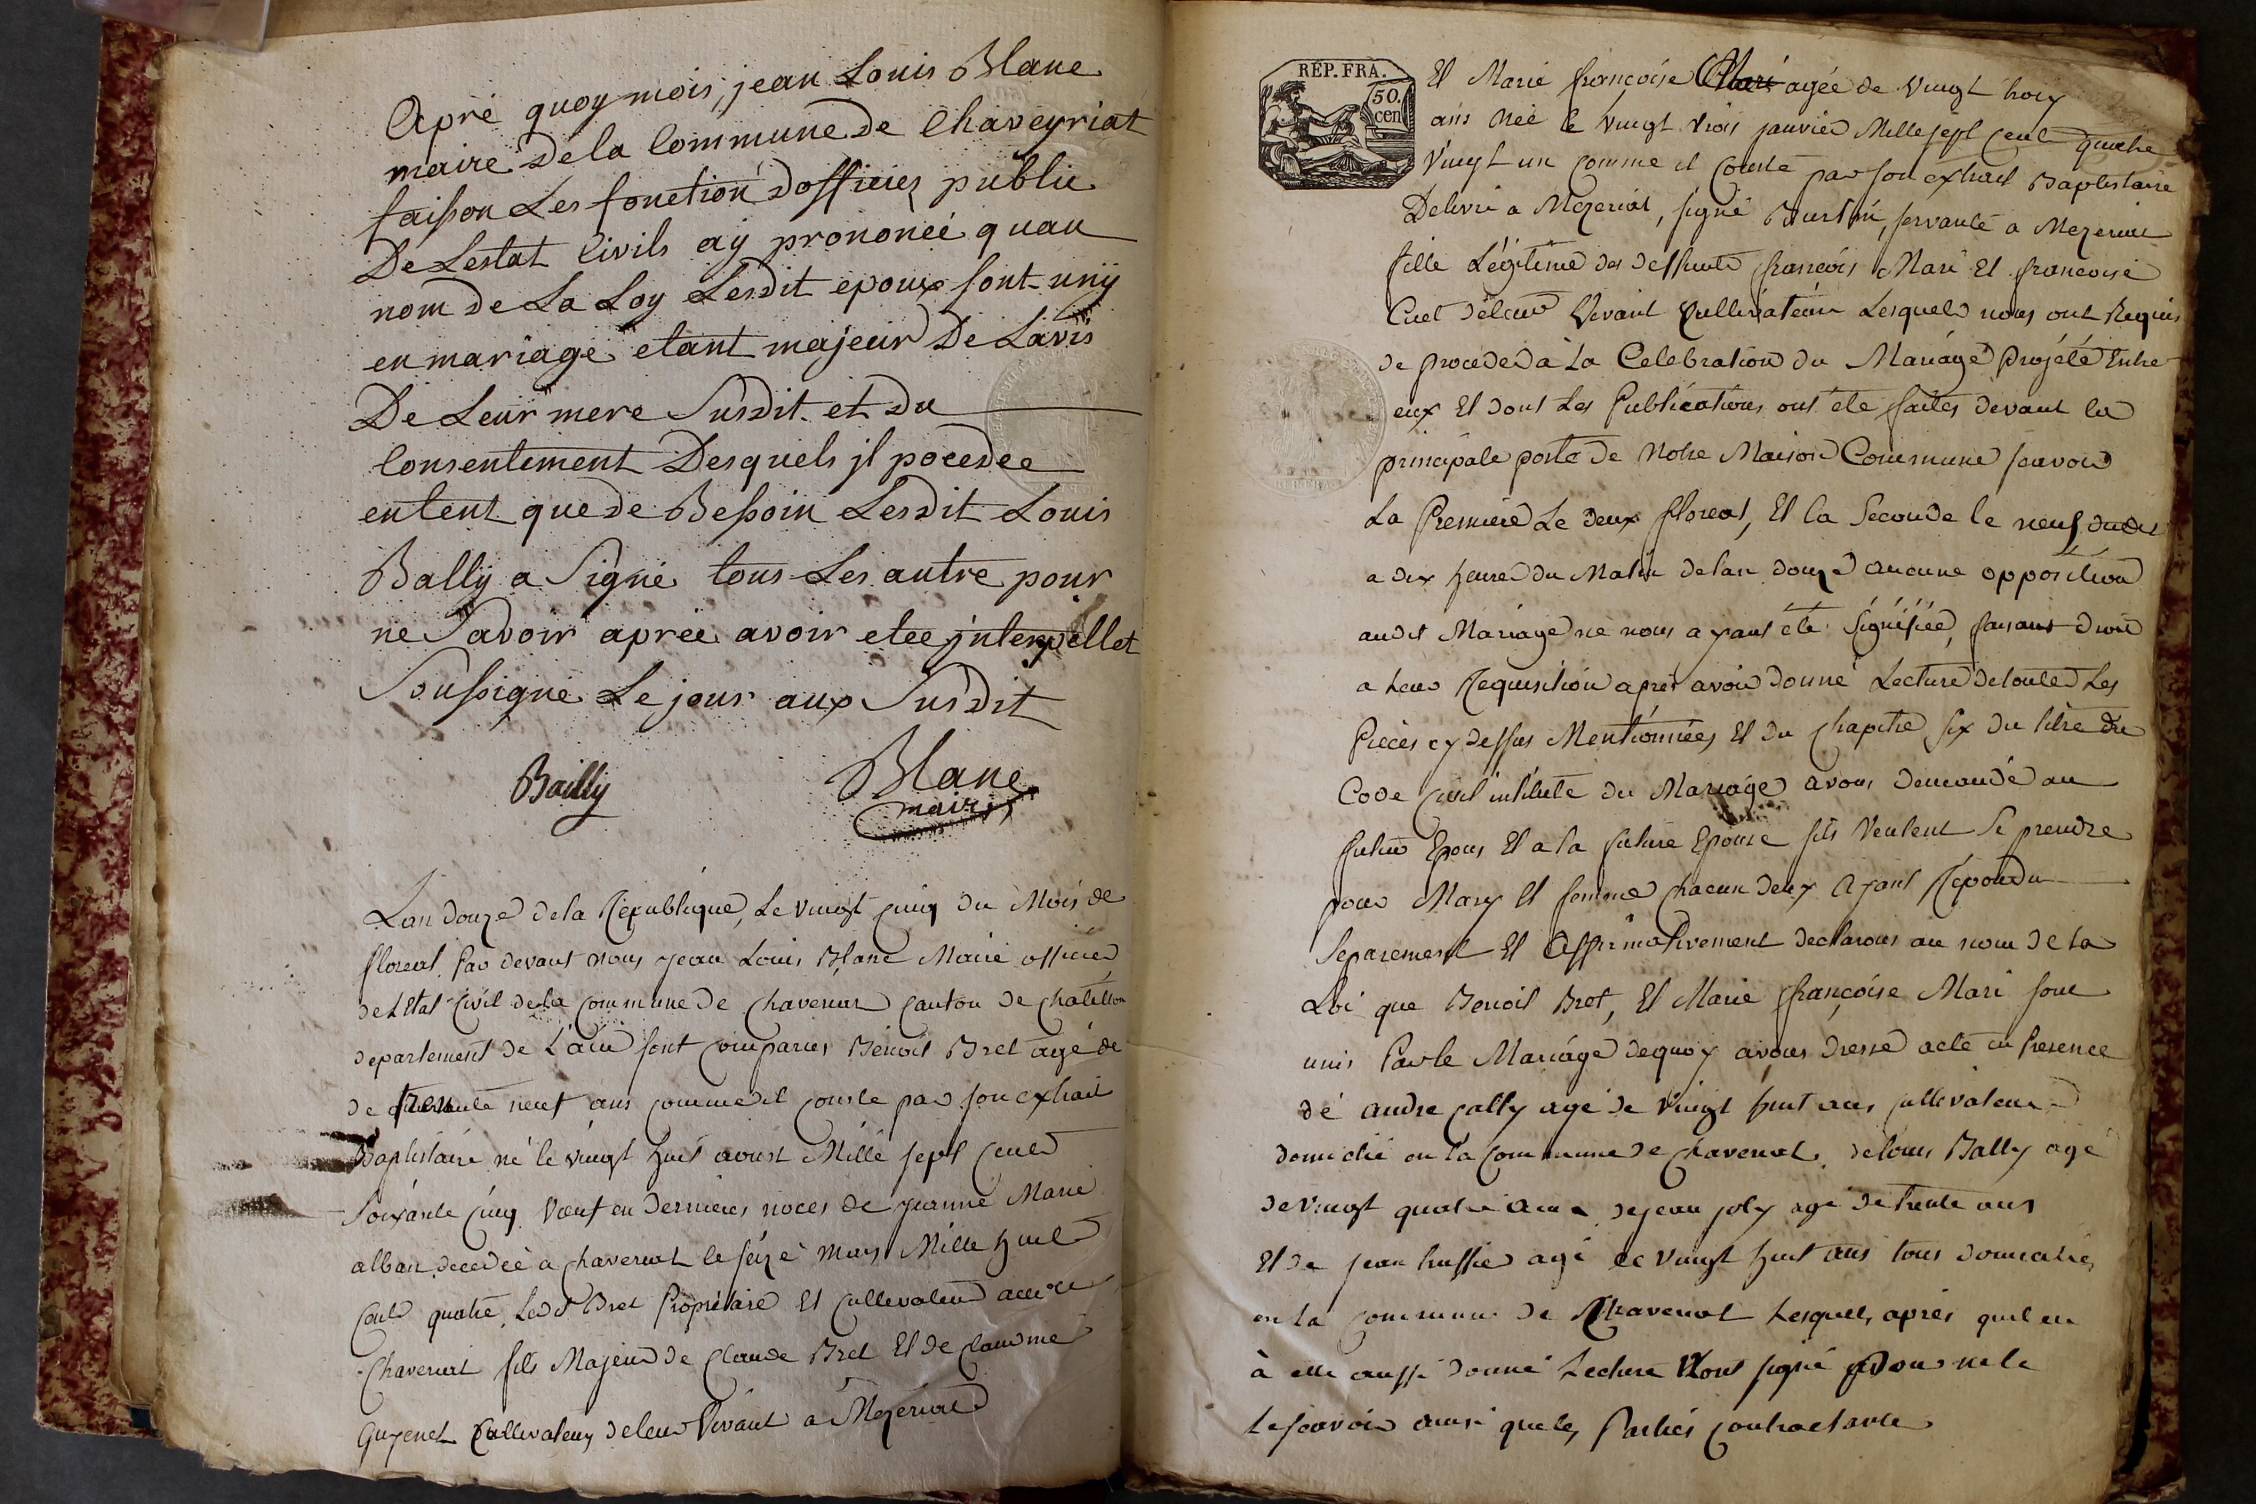 Apré quoy mois, jean Louis Blanc
maire De la Commune de Chaveyriat
faisson Les fonction dofficier public
De Lestat Civils aÿ prononcéé quau
nom de La Loy Lesdit epoux sont unÿ
en mariage etant majeur De Lavis
De Leur mere Susdit et du
Consentement Desquels jl pocedee
entent que de Bessoin Lesdit Louis
Ballÿ a Signé tous Les autre pour
ne Savoir apreé avoir etee jnterpellet
Soussigné Le jour aux Susdit
Bailly
Blanc
maire
Lan douze de la Republique, Le vingt cinq du Mois de
floreal Par devant nous jean Louis Blanc Maire officier
de L'Etat Civil de la Commune de Chaveriat canton de Chatillon
departement de L'ain sont comparus Benoit Bret agé de
de trente neuf ans comme il conste par son extrait
Baptistaire né le vingt huit aoust Mille sept Cent
Soixante cinq Veuf en dernieres noces de jeanne Marie
alban decedée a chaveriat le seize Mars Mille huit
Cent quatre Ledt Bret Propriétaire Et Cultivateur
Chaveriat fils Majeur de Claude Bret Et de Claudine
Guyenet Cultivateurs de leur Vivant a Mezeriat
REP. FRA.
50.
cen
Et Marie françoise Mari agée de vingt troiy
ans Née le vingt trois janvier Mille sept Cent quatre
Vingt un comme il Conste par son extrait Baptistaire
Delivré a Mezeriat, signé, servante a Mezeriat
fille Légitime des deffunts françois Mari Et francoise
Cuet de leur Vivant Cultivateur Lesquels nous ont Requis
de proceder à La Celebration du Mariage Projété Entre
eux Et dont Les Publications ont été faites devant la
principale porte de Notre Maison Commune scavoir
La Premiere Le deux floreal, Et la Seconde le neuf dudit
a dix heures du Matin de lan douze aucune opposition
audit Mariage ne nous ayant été Signifiée, faisant droit
a Leur Requisition aprés avoir donné Lecture de toutes Les
Pieces cy dessus Mentionnées Et du Chapitre six du titre du
Code Civil intitulé du Mariage avons demandé au
futur Epoux Et a la future Epouse sils Veulent Se prendre
pour Mary Et femme chacun deux Ayant Répondu
Separement Et Affirmativement declarons au nom de La
Loi que Benoit Bret, Et Marie françoise Mari sont
unis Par le Mariage dequoy avons dressé acte en Presence
de andre Cally agé de Vingt huit ans cultivateur
domicilié en la Commune de Chaveriat de Louis Bally agé
de vingt quatre ans de jean joly agé de trente ans
Et de jean agé de Vingt huit ans tous domiciliés
en La Commune de Chaveriat Lesquels aprés quil en
à été aussi donné Lecture nont signé pour ne le
le scavoir ainsi que les Parties Contractante